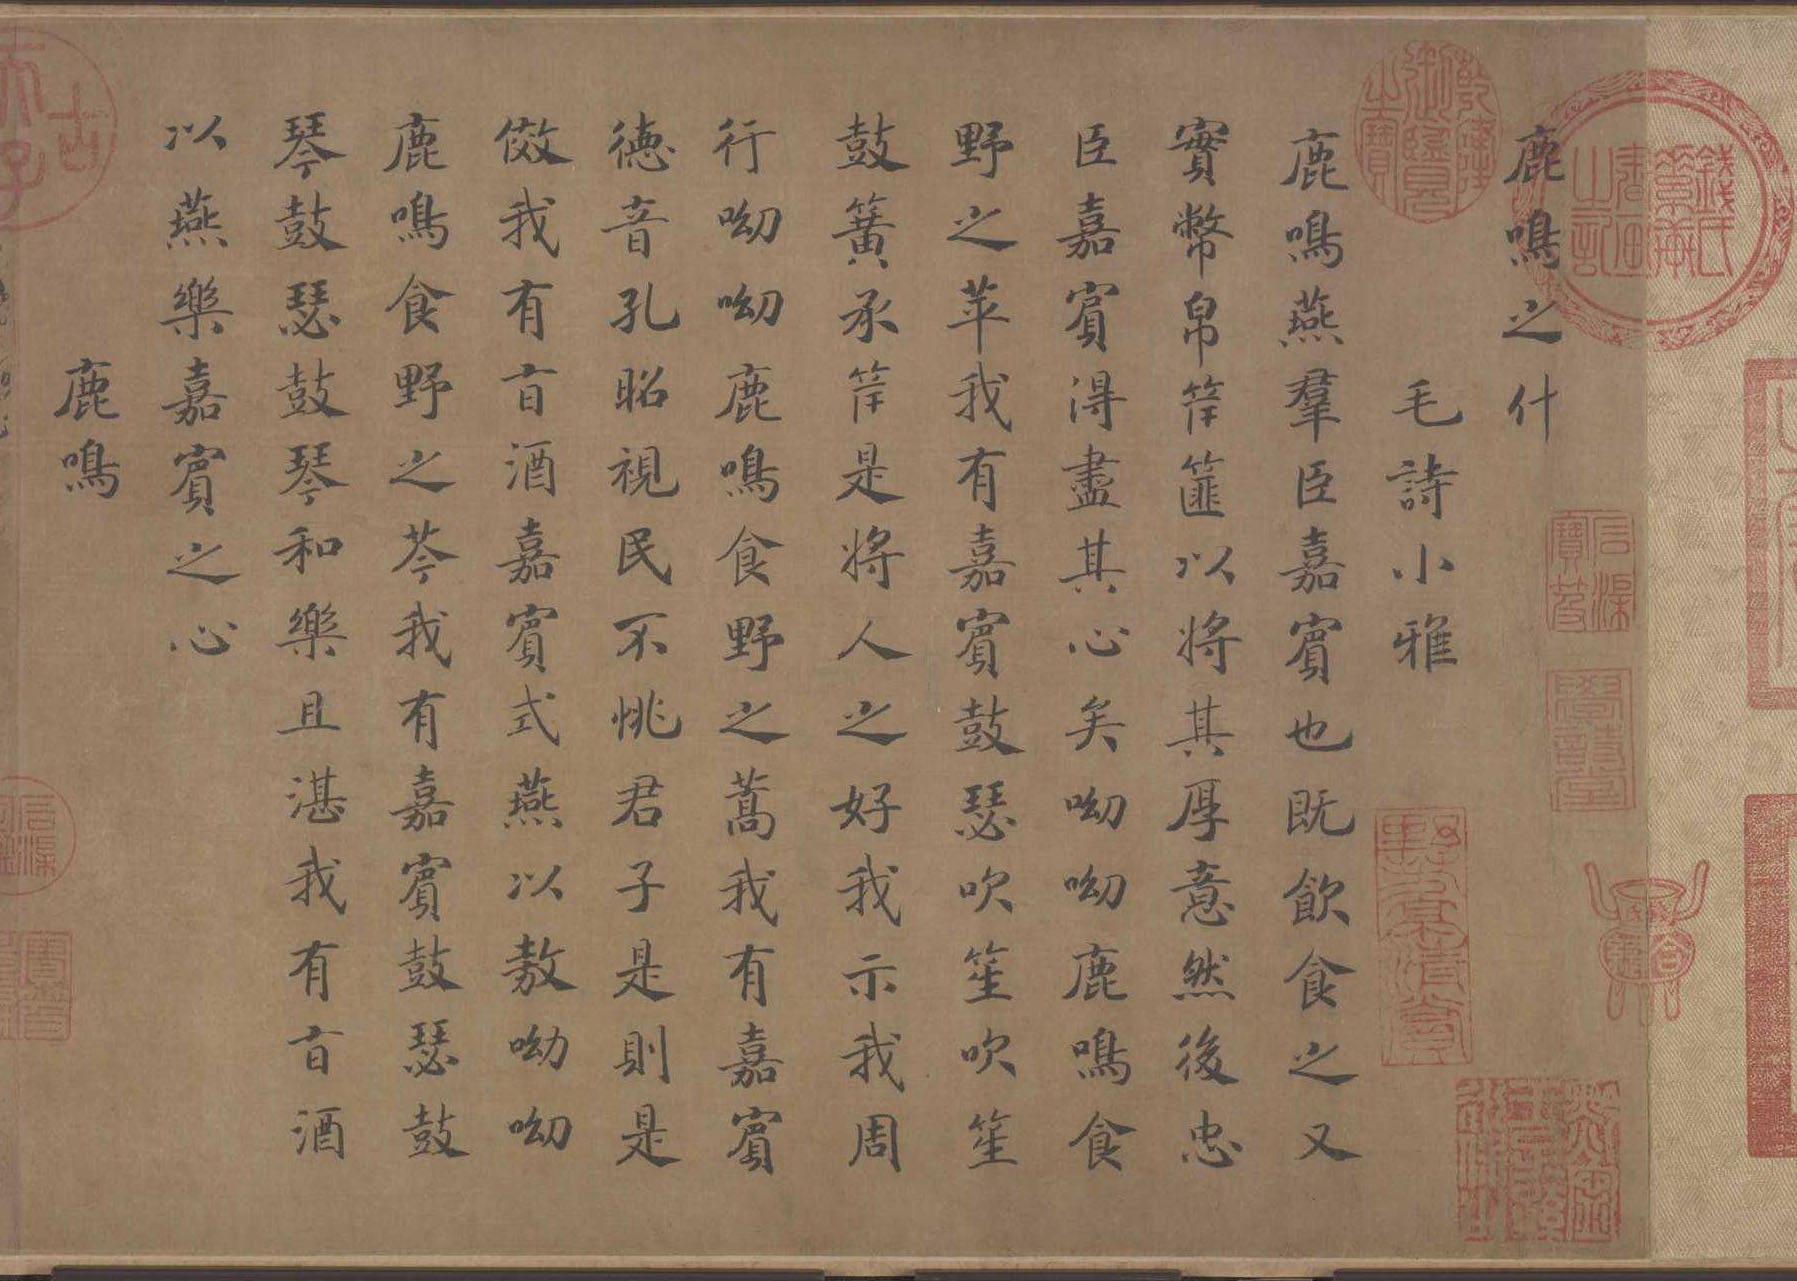 鹿鳴之什
毛詩小雅
鹿鳴燕羣臣嘉賔也既飲食之又
實幣帛筐篚以将其厚意然後忠
臣嘉賔得盡其心矣呦呦鹿鳴食
野之苹我有嘉賔鼓瑟吹笙吹笙
鼓簧承筐是将人之好我示我周
行呦呦鹿鳴食野之蒿我有嘉賔
徳音孔昭視民不恌君子是則是
傚我有旨酒嘉賔式燕以敖呦呦
鹿鳴食野之芩我有嘉賔鼓瑟鼓
琴鼓瑟鼓琴和樂且湛我有旨酒
以燕樂嘉賔之心
鹿鳴